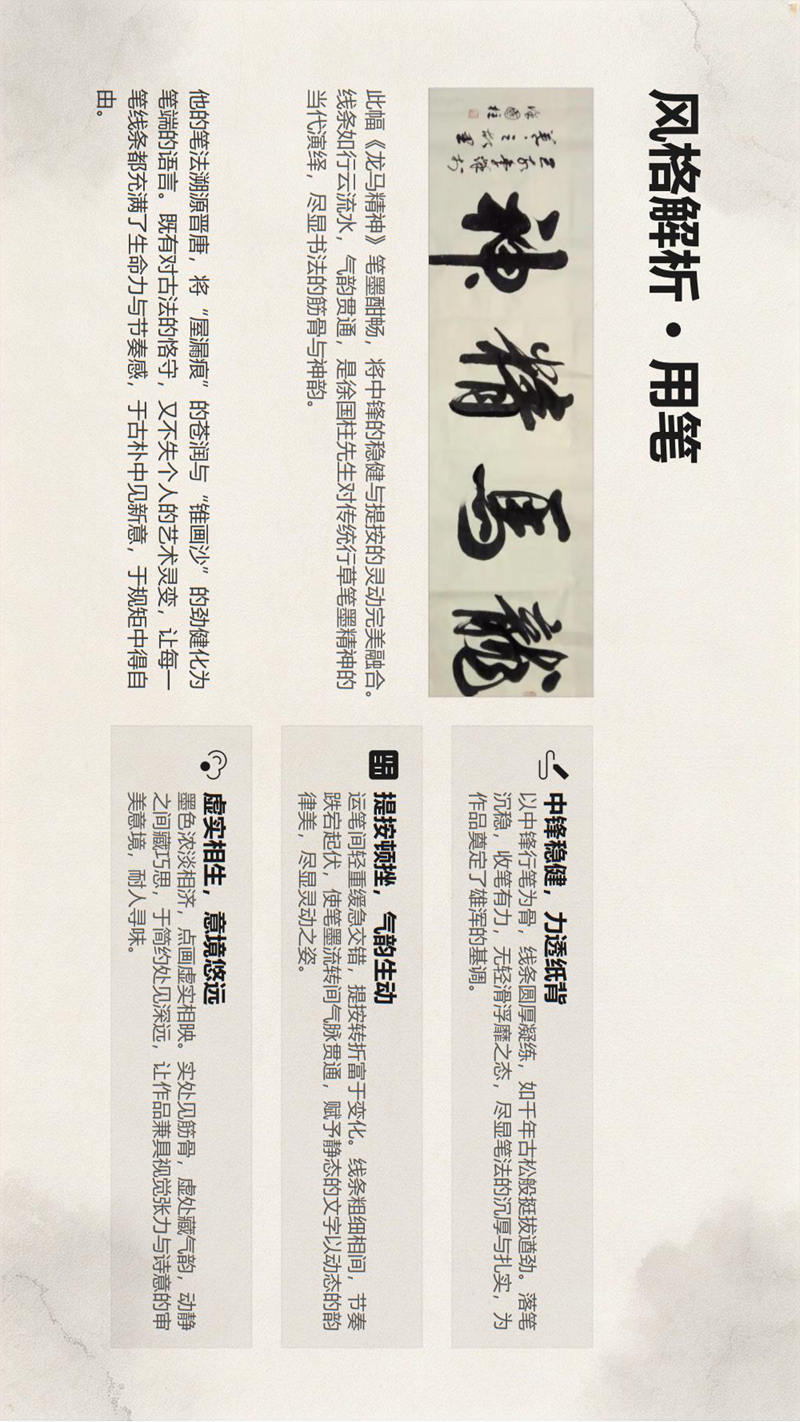 风格解析·用笔
龍馬精神
徐國柱
此幅《龙马精神》笔墨酣畅，将中锋的稳健与提按的灵动完美融合。
线条如行云流水，气韵贯通，是徐国柱先生对传统行草笔墨精神的
当代演绎，尽显书法的筋骨与神韵。
他的笔法溯源晋唐，将“屋漏痕”的苍润与“锥画沙”的劲健化为
笔端的语言。既有对古法的恪守，又不失个人的艺术灵变，让每一
笔线条都充满了生命力与节奏感，于古朴中见新意，于规矩中得自
由。
中锋稳健，力透纸背
以中锋行笔为骨，线条圆厚凝练，如千年古松般挺拔遒劲。落笔
沉稳，收笔有力，无轻滑浮靡之态，尽显笔法的沉厚与扎实，为
作品奠定了雄浑的基调。
提按顿挫，气韵生动
运笔间轻重缓急交错，提按转折富于变化。线条粗细相间，节奏
跌宕起伏，使笔墨流转间气脉贯通，赋予静态的文字以动态的韵
律美，尽显灵动之姿。
虚实相生，意境悠远
墨色浓淡相济，点画虚实相映。实处见筋骨，虚处藏气韵，动静
之间藏巧思，于简约处见深远，让作品兼具视觉张力与诗意的审
美意境，耐人寻味。